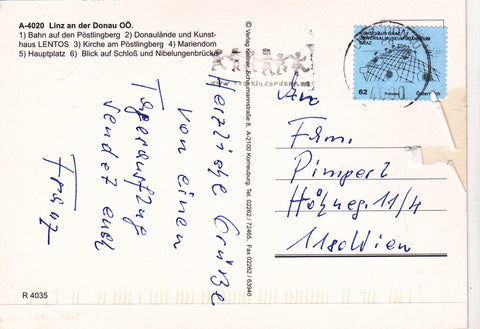 A-4020 Linz an der Donau OÖ.
1) Bahn auf den Pöstlingberg 2) Donaulände und Kunst-
haus LENTOS 3) Kirche am Pöstlingberg 4) Mariendom
5) Hauptplatz 6) Blick auf Schloß und Nibelungenbrücke
Herzliche Grüße
von einem
Tagesausflug
sendet euch
Franz
R 4035
© Verlag
A-2100 Korneuburg, Tel. 02262 / 72465, Fax 02262 / 63940
KUNSTHAUS GRAZ
UNIVERSALMUSEUM JOANNEUM
GRAZ
62
An
Fam.
Pimperl
11